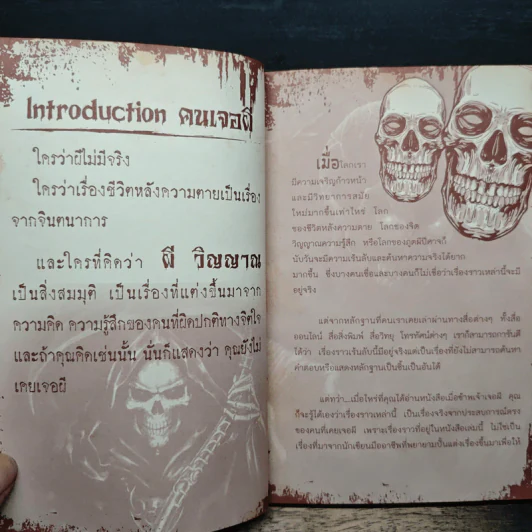 Introduction คนเจอผี
ใครว่าผีไม่มีจริง
ใครว่าเรื่องชีวิตหลังความตายเป็นเรื่อง
จากจินตนาการ
และใครที่คิดว่า ผี วิญญาณ
เป็นสิ่งสมมุติ เป็นเรื่องที่แต่งขึ้นมาจาก
ความคิด ความรู้สึกของคนที่ผิดปกติทางจิตใจ
และถ้าคุณคิดเช่นนั้น นั่นก็แสดงว่า คุณยังไม่
เคยเจอผี
เมื่อโลกเรา
มีความเจริญก้าวหน้า
และมีวิทยาการสมัย
ใหม่มากขึ้นเท่าใหร่ โลก
ของชีวิตหลังความตาย โลกของจิต
วิญญาณความรู้สึก หรือโลกของภูตผีปีศาจก็
นับวันจะมีความเร้นลับและค้นหาความจริงได้ยาก
มากขึ้น ซึ่งบางคนเชื่อและบางคนก็ไม่เชื่อว่าเรื่องราวเหล่านี้จะมี
อยู่จริง
แต่จากหลักฐานที่คนเราเคยเล่าผ่านทางสื่อต่างๆ ทั้งสื่อ
ออนไลน์ สื่อสิ่งพิมพ์ สื่อวิทยุ โทรทัศน์ต่างๆ เราก็สามารถการันตี
ได้ว่า เรื่องราวเร้นลับนี้มีอยู่จริงแต่เป็นเรื่องที่ยังไม่สามารถค้นหา
คำตอบหรือแสดงหลักฐานเป็นชิ้นเป็นอันได้
แต่ทว่า...เมื่อไหร่ที่คุณได้อ่านหนังสือเมื่อข้าพเจ้าเจอผี คุณ
ก็จะรู้ได้เองว่าเรื่องราวเหล่านี้ เป็นเรื่องจริงจากประสบการณ์ตรง
ของคนที่เคยเจอผี เพราะเรื่องราวที่อยู่ในหนังสือเล่มนี้ ไม่ใช่เป็น
เรื่องที่มาจากนักเขียนมืออาชีพที่พยายามปั้นแต่งเรื่องขึ้นมาเพื่อให้